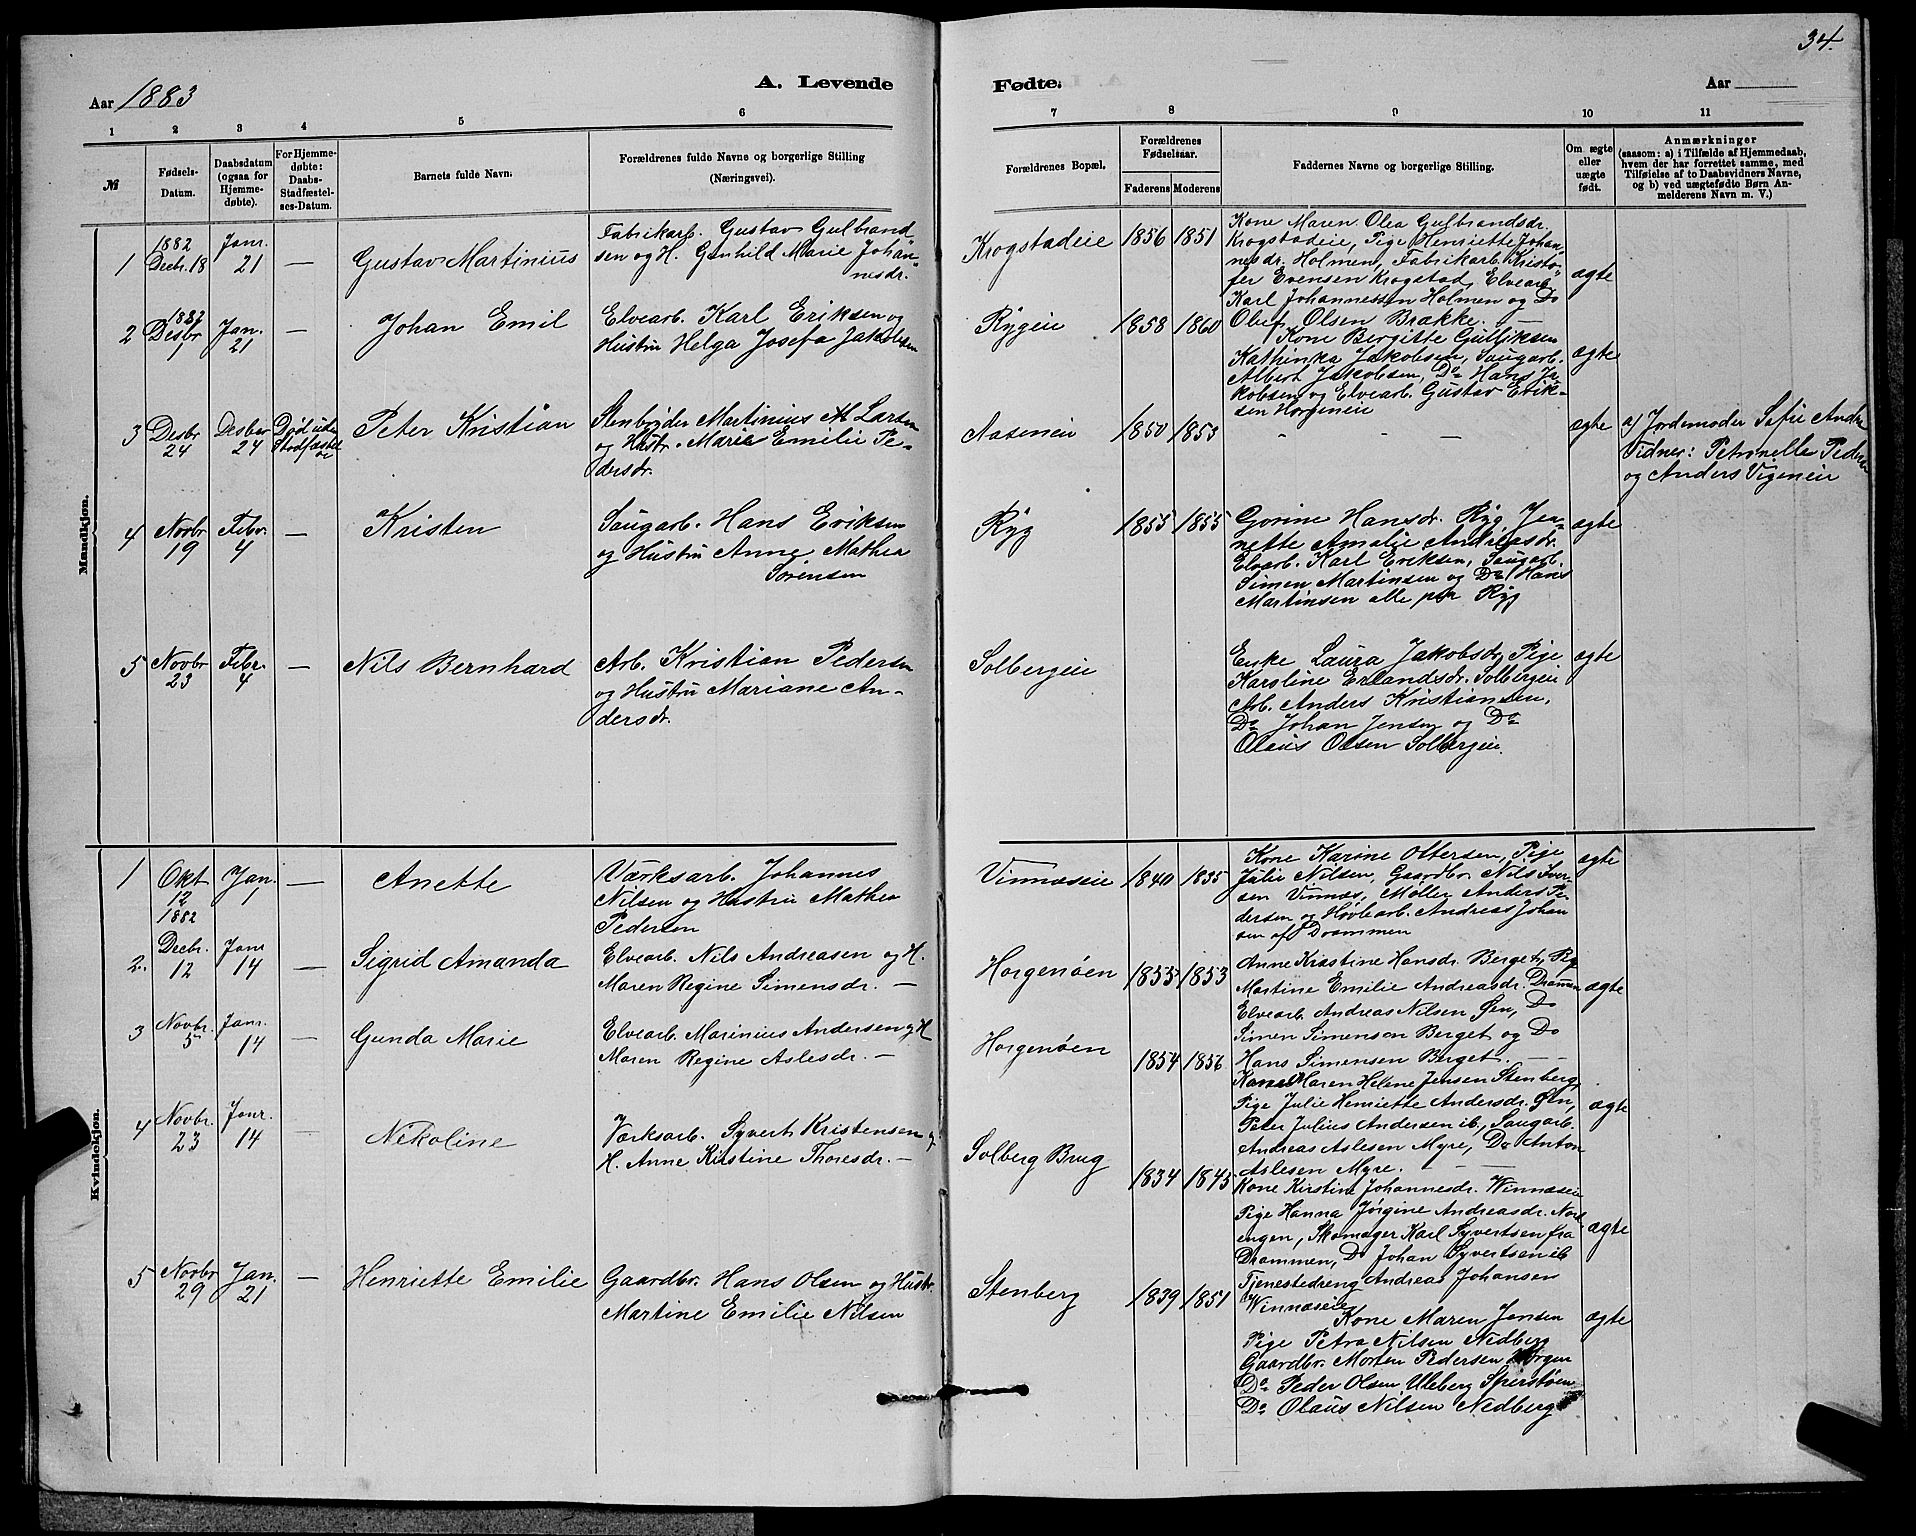 34.
Aar 1883
A. Levende
Fødte.
Aar
1 2 3 4 5 6
7 8 9 10 11
№
Fødsels-
Datum.
Daabsdatum
(ogsaa for
Hjemme-
døbte).
For Hjemme-
døbte:
Daabs-
Stadfæstel-
ses-Datum.
Barnets fulde Navn.
Forældrenes fulde Navne og borgerlige Stilling
(Næringsvei).
Forældrenes Bopæl.
Forældrenes
Fødselsaar.
Faderens
Moderens
Faddernes Navne og borgerlige Stilling.
Om ægte
eller
uægte
født.
Anmærkninger
(saasom: a) i Tilfælde af Hjemmedaab,
hvem der har forrettet samme, med
Tilføielse af to Daabsvidners Navne,
og b) ved uægtefødte Børn An-
melderens Navn m. V.)
Mandkjøn.
1
1882
Decbr. 18
Janr.
21
—
Gustav Martinius
Fabrikarb. Gustav Gulbrand
sen og H. Gunhild Marie Johan"
nesdr.
Krogstadeie
1856
1851
Kone Maren Olea Gulbrandsdr
Krogstadeie, Pige Henriette Johan
nesdr. Holmen, Fabrikarb. Kristo"
fer Evensen Krogstad, Elvearb
Karl Johannessen Holmen og Do
Oluf Olsen Brække. —
ægte
2
1882
Desbr
1
Jan.
21
—
Johan Emil
Elvearb. Karl Eriksen og
Hustru Helga Josefa Jakobsen
Rygeie
1858
1860
Kone Bergitte Gulliksen
Kathinka Jakobsen, Saugarb.
Albert Jakobsen, Do Hans Ja
kobsen og Elvearb. Gustav Erik-
sen Horgeneie
ægte
3
Desbr
24
Desber
24
Død uden
Stadfæstel
se
Peter Kristian
Stenbryder Martinius M Larsen
og Hustr. Marie Emilie Pe-
dersdr.
Aaseneie
1850
1853
- - -
ægte
a) Jordemoder Sofie Andr
Vidner: Petronella Peders
og Anders Vigeneie
4
Novbr
19
Febr.
4
—
Kristen
Saugarb. Hans Eriksen
og Hustru Anne Mathea
Sørensen
Ryg
1855
1855
Gorine Hansdr. Ryg, Jea-
nette Amalie Andreasdr.
Elvearb. Karl Eriksen, Saugarb.
Simen Martinsen og Do Hans
Martinsen alle paa Ryg
ægte
5
Novbr
23
Febr.
4
—
Nils Bernhard
Arb. Kristian Pedersen
og Hustru Mariane An-
dersdr.
Solbergeie
Enke Laura Jakobsdr, Pige
Karoline Erlandsdr. Solbergeie
Arb. Anders Kristiansen,
Do Johan Jensen og Do
Olaus Olsen Solbergeie.
ægte
Kvindekjøn.
1
Okt
12
1882
Jan.
1
—
Anette
Værksarb. Johannes
Nilsen og Hustru Mathea
Pedersen
Vinnæseie
1840
1835
Kone Karine Ottersen, Pige
Julie Nilsen, Gaardbr. Nils Iver-
sen Vinnæs, Møller Anders Pe-
dersen og Høvlearb. Andreas Johan
sen af Drammen
ægte
2.
Decbr.
12
Janr
14
—
Sigrid Amanda
Elvearb. Nils Andreasen og H.
Maren Regine Simensdr. —
Horgenøen
1855
1853
Anne Kristine Hansdr. Berget, Pige
Martine Emilie Andreasdr. Drammen
Elvearb. Andreas Nilsen Øen, Do
Simen Simensen Berget og Do
Hans Simensen Berget. —
ægte
3
Novbr.
5
Janr.
14
—
Gunda Marie
Elvearb. Marinius Andersen og H
Maren Regine Aslesdr. —
Horgenøen
1854
1856
Kone Maren Helene Jensen Stenberg,
Pige Julie Henriette Andersdr. Øen,
Peter Julius Andersen ib., Saugarb.
Andreas Aslesen Myre, Do Anton
Aslesen Myre. —
ægte
4
Novbr.
23
Janr.
14
Nikoline
Værksarb. Syvert Kristensen og
H. Anne Kirstine Thoresdr. —
Solberg Brug
1834
1845
Kone Kirstine Johannesdr. Winnæseie
Pige Hanna Jørgine Andreasdr. Nord
engen, Skomager Karl Syvertsen fra
Drammen, Do Johan Syvertsen ib
Tjenestedreng Andreas Johansen
Winnæseie
ægte
5
Novbr
29
Jan.
21
—
Henriette Emilie
Gaardbr. Hans Olsen og Hustr.
Martine Emilie Nilsen
Stenberg
1839
1851
Kone Maren Jensen
Pige Petra Nilsen Nedberg
Gaardbr. Morten Pedersen Horgen
Do Peder Olsen Ulleberg Sperstøen
Do Olaus Nilsen Nedberg
ægte